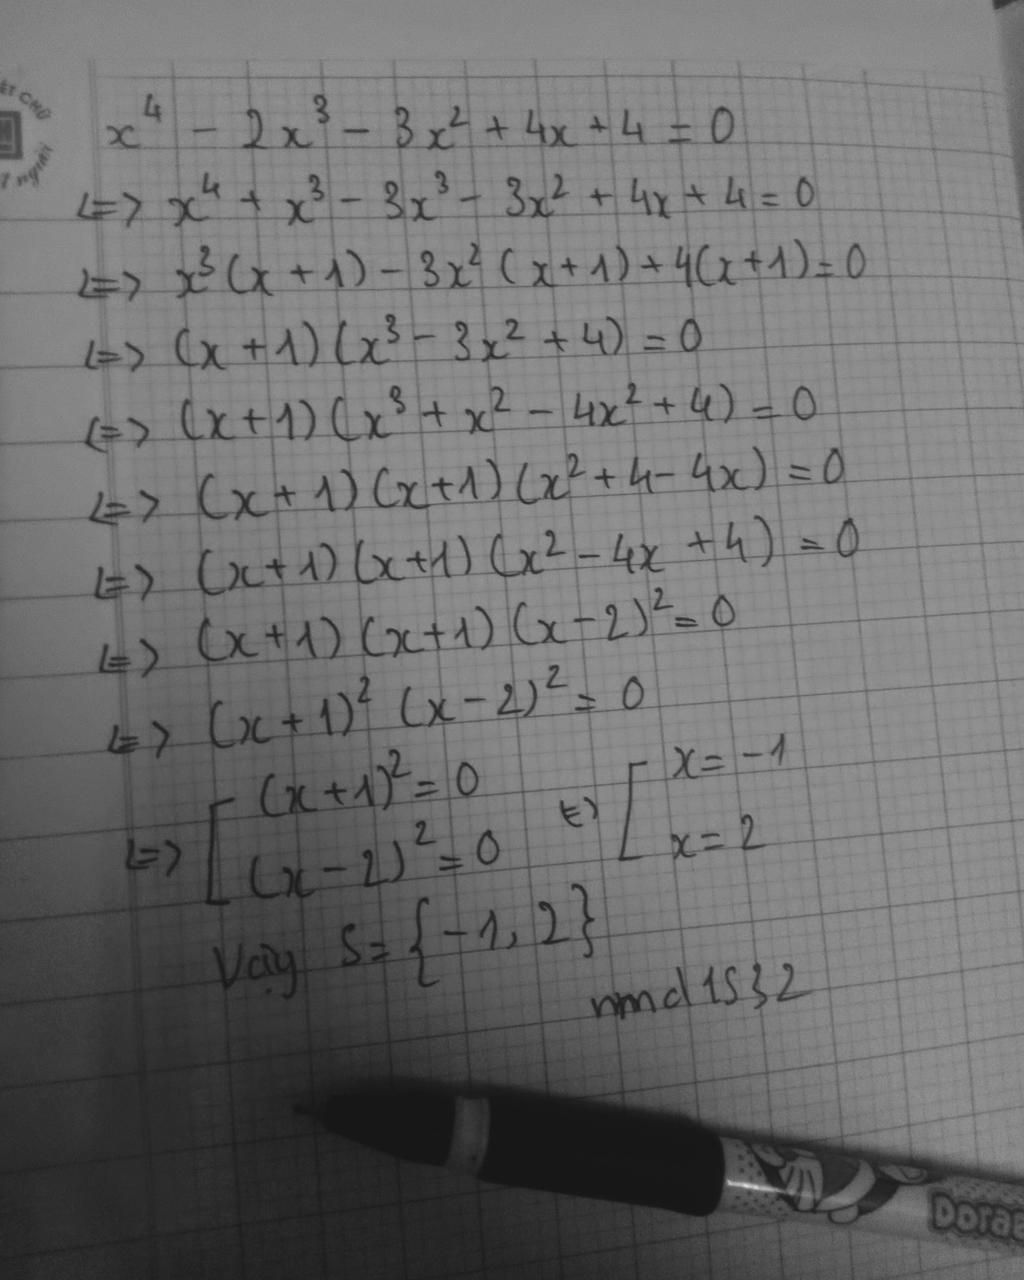 x⁴ - 2x³ - 3x² + 4x + 4 = 0
<=> x⁴ + x³ - 3x³ - 3x² + 4x + 4 = 0
<=> x³(x + 1) - 3x²(x + 1) + 4(x + 1) = 0
<=> (x + 1)(x³ - 3x² + 4) = 0
<=> (x + 1)(x³ + x² - 4x² + 4) = 0
<=> (x + 1)(x + 1)(x² + 4 - 4x) = 0
<=> (x + 1)(x + 1)(x² - 4x + 4) = 0
<=> (x + 1)(x + 1)(x - 2)² = 0
<=> (x + 1)² (x - 2)² = 0
<=> [ (x + 1)² = 0 <=> [ x = -1
(x - 2)² = 0 x = 2
Vậy S = {-1, 2}
nmd1532